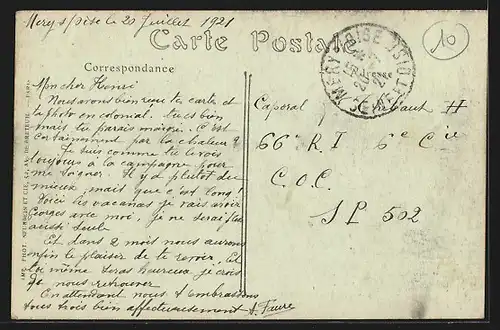 Mery s/oise le 20 Juillet 1921
Carte Postale
10
Correspondance
MERY-S-OISE
Mon cher Henri
Nous avons bien reçu ta carte et
ta photo en colonial. Tu es bien
mais tu parais maigri. C'est
certainement par la chaleur ?
Je suis comme tu le vois
toujours à la campagne pour
me soigner. Il y a plutôt du
mieux, mais que c'est long !
Voici les vacances je vais avoir
Georges avec moi, je ne serai plus
aussi seule
Et dans 2 mois nous aurons
enfin le plaisir de te revoir. Et
toi même seras heureux je crois
de nous retrouver
En attendant nous t'embrassons
tous trois bien affectueusement A. Faure
Caporal H
66e R I 6e Cie
C.O.C.
S P 502